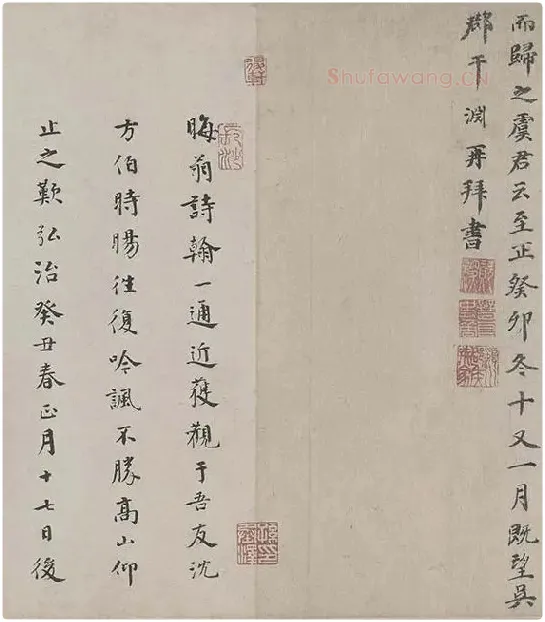 而歸之虞君云至正癸卯冬十又一月既望吳
郡干淵再拜書
晦翁詩翰一通近獲觀于吾友沈
方伯時暘往復吟諷不勝高山仰
止之歎弘治癸丑春正月十七日後
Shufawang.CN